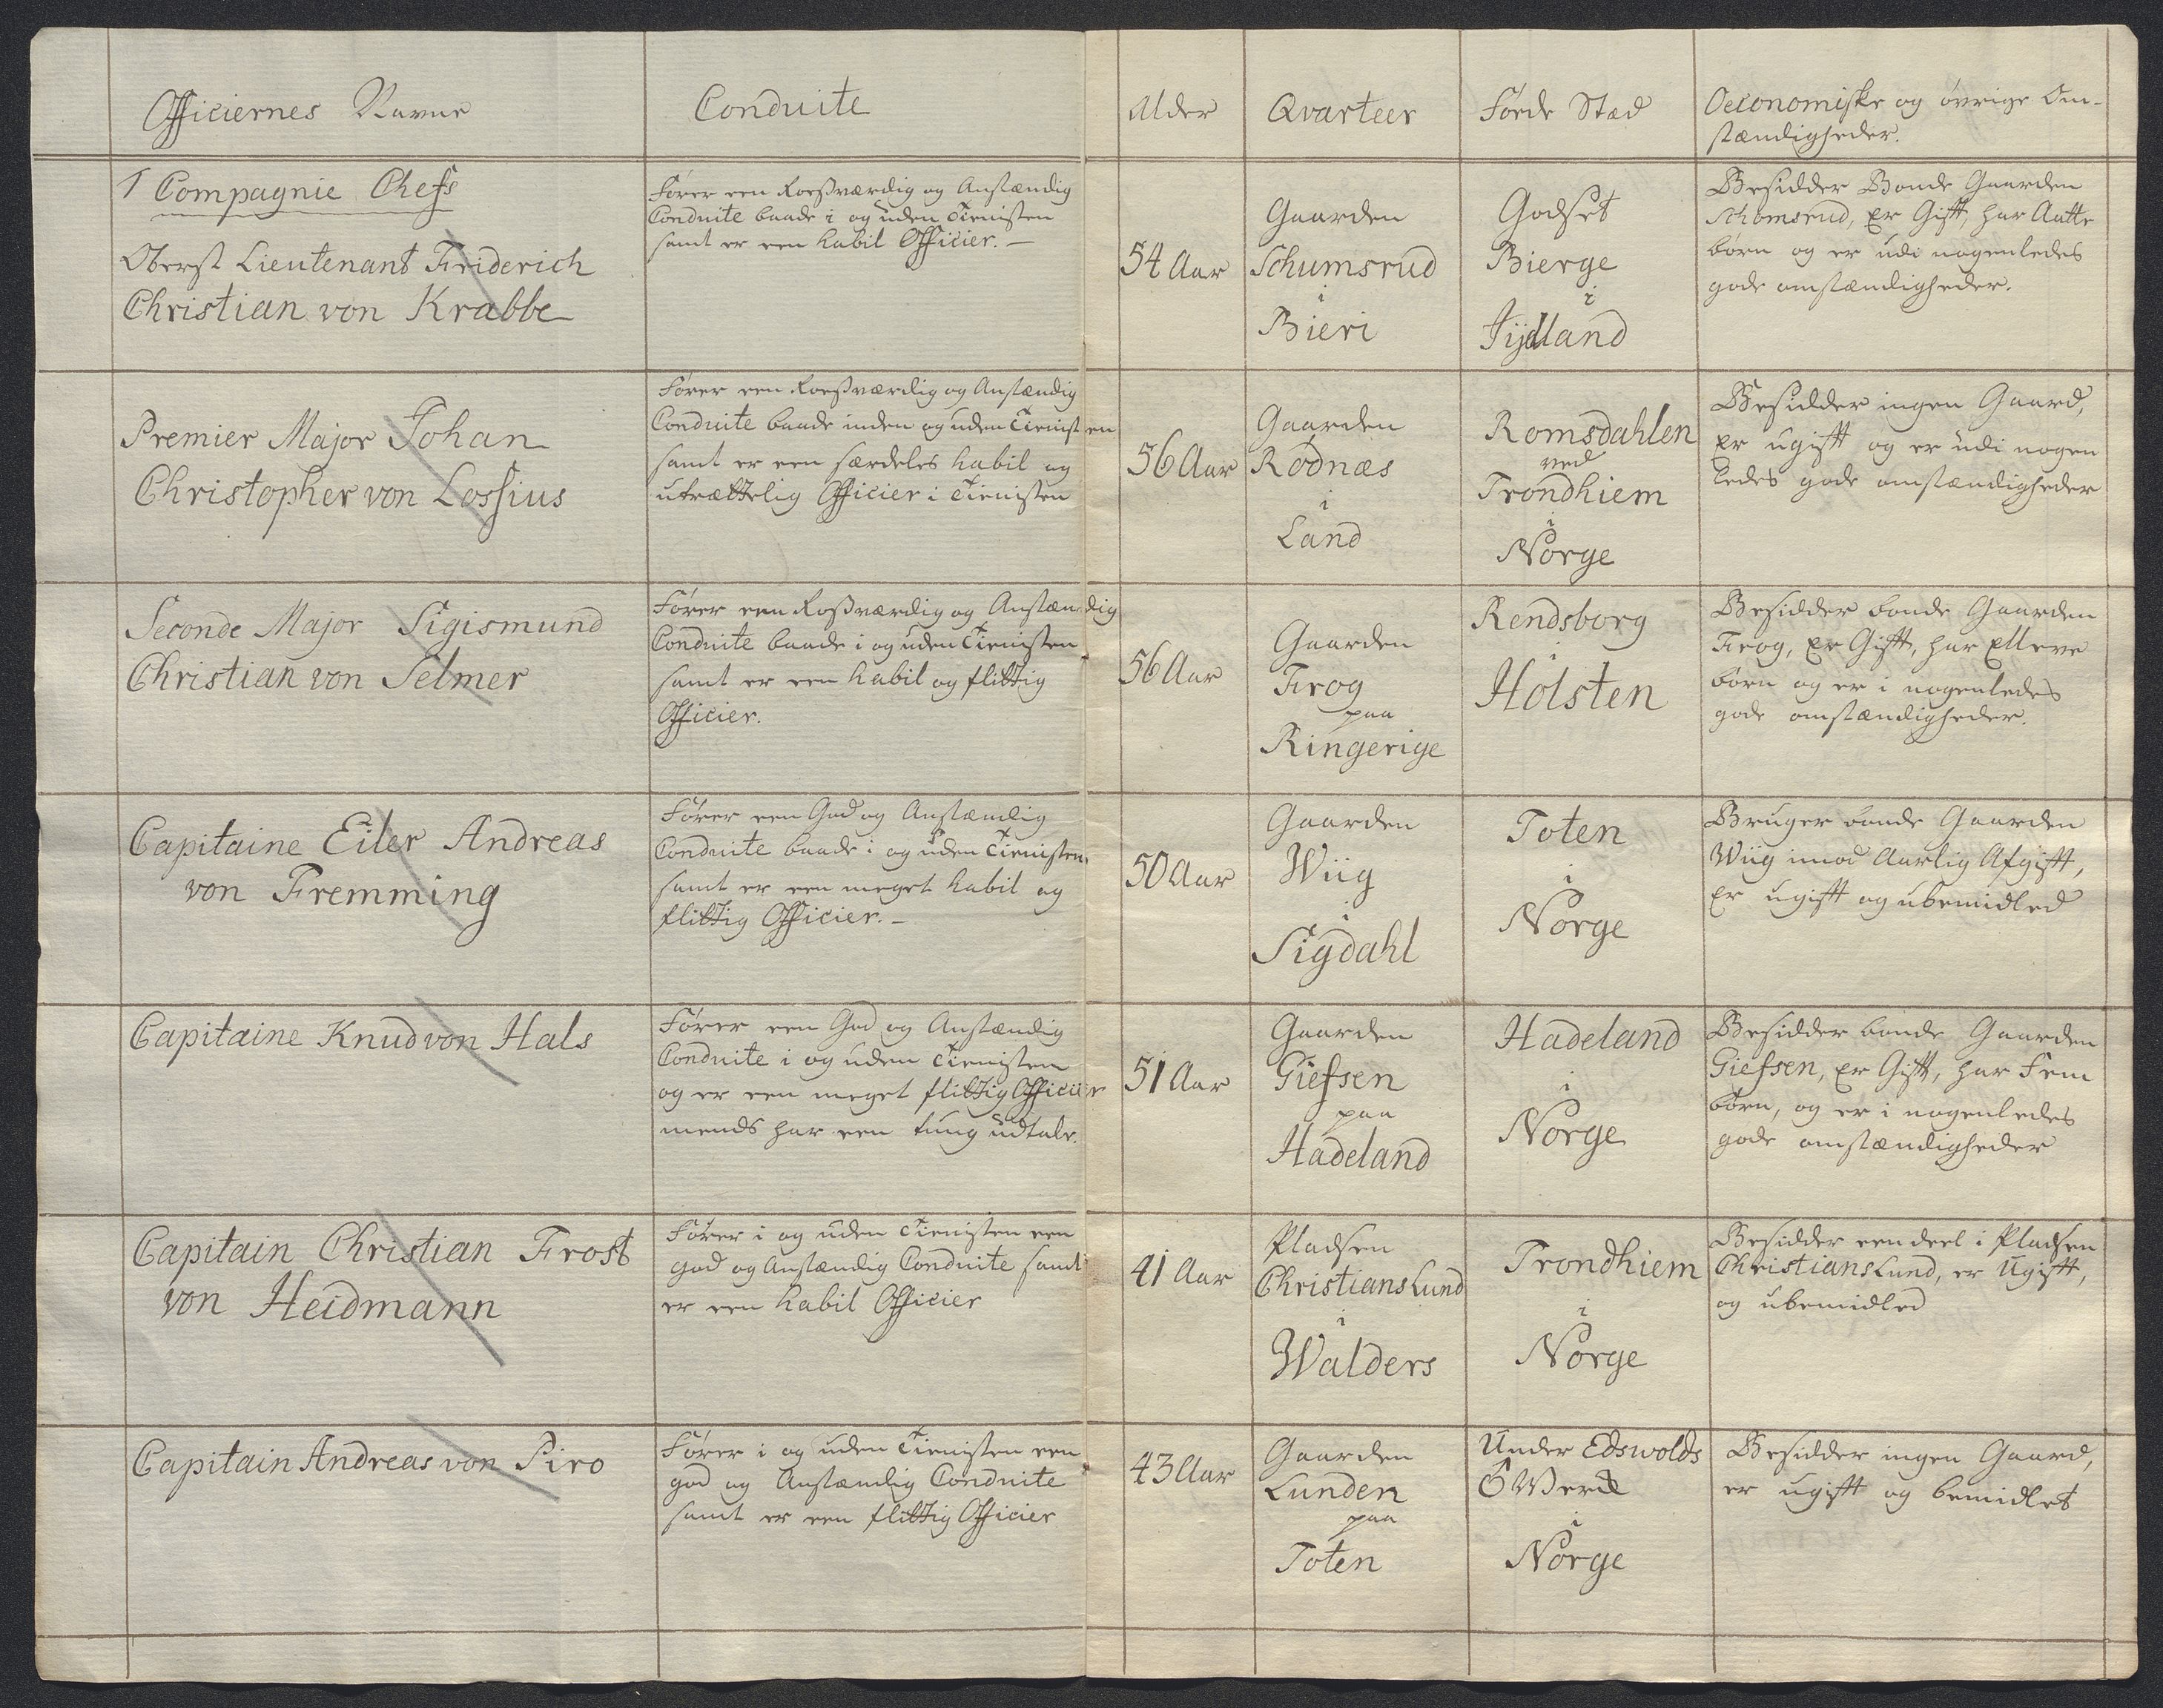 Officiernes Navne
Conduite
Alder
Qvarteer
Føede Stæd
Oeconomiske og øvrige Om-
stændigheder.
1 Compagnie Chefs
Oberst Lieutenant Friderich
Christian von Krabbe
Fører een Roesværdig og Anstændig
Conduite baade i og uden Tienisten
samt er een habil Officier. —
54 Aar
Gaarden
Schumsrud
i
Bieri
Godset
Bierge
i
Jydland
Besidder Bonde Gaarden
Schomsrud, er Gift, har Aatte
børn og er udi nogenledes
gode omstændigheder.
Premier Major Johan
Christopher von Lossius
Fører een Roesværdig og Anstændig
Conduite baade inden og uden Tienisten
samt er een særdeles habil og
utrættelig Officier i Tienisten
56 Aar
Gaarden
Rodnæs
i
Land
Romsdahlen
ved
Trondhiem
i
Norge
Besidder ingen Gaard,
er ugift og er udi nogen
ledes gode omstændigheder
Seconde Major Sigismund
Christian von Selmer
Fører een Rosværdig og Anstændig
Conduite baade i og uden Tienisten
samt er een habil og flittig
Officier.
56 Aar
Gaarden
Frog
paa
Ringerige
Rendsborg
i
Holsten
Besidder bonde Gaarden
Frog, er Gift, har Elleve
børn og er i nogenledes
gode omstændigheder.
Capitaine Eiler Andreas
von Fremming
Fører een God og Anstændig
Conduite baade i og uden Tienisten
samt er een meget habil og
flittig Officier. —
50 Aar
Gaarden
Wiig
i
Sigdahl
Toten
i
Norge
Bruger bonde Gaarden
Wiig imod Aarlig Afgift,
er ugift og ubemidled
Capitaine Knud von Hals
Fører een God og Anstændig
Conduite i og uden Tienisten
og er een meget flittig Officier
mends har een tung udtale.
51 Aar
Gaarden
Giefsen
paa
Hadeland
Hadeland
i
Norge
Besidder bonde Gaarden
Giefsen, er Gift, har Fem
børn, og er i nogenledes
gode omstændigheder
Capitain Christian Frost
von Heidmann
Fører i og uden Tienisten een
god og Anstændig Conduite samt
er een habil Officier
41 Aar
Pladsen
ChristiansLund
i
Walders
Trondhiem
i
Norge
Besidder een deel i Pladsen
ChristiansLund, er Ugift,
og ubemidled
Capitain Andreas von Piro
Fører i og uden Tienisten een
god og Anstændig Conduite
samt er een flittig Officier
43 Aar
Gaarden
Lunden
paa
Toten
Under Edswolds
i
Norge
Besidder ingen Gaard,
er ugift og bemidlet